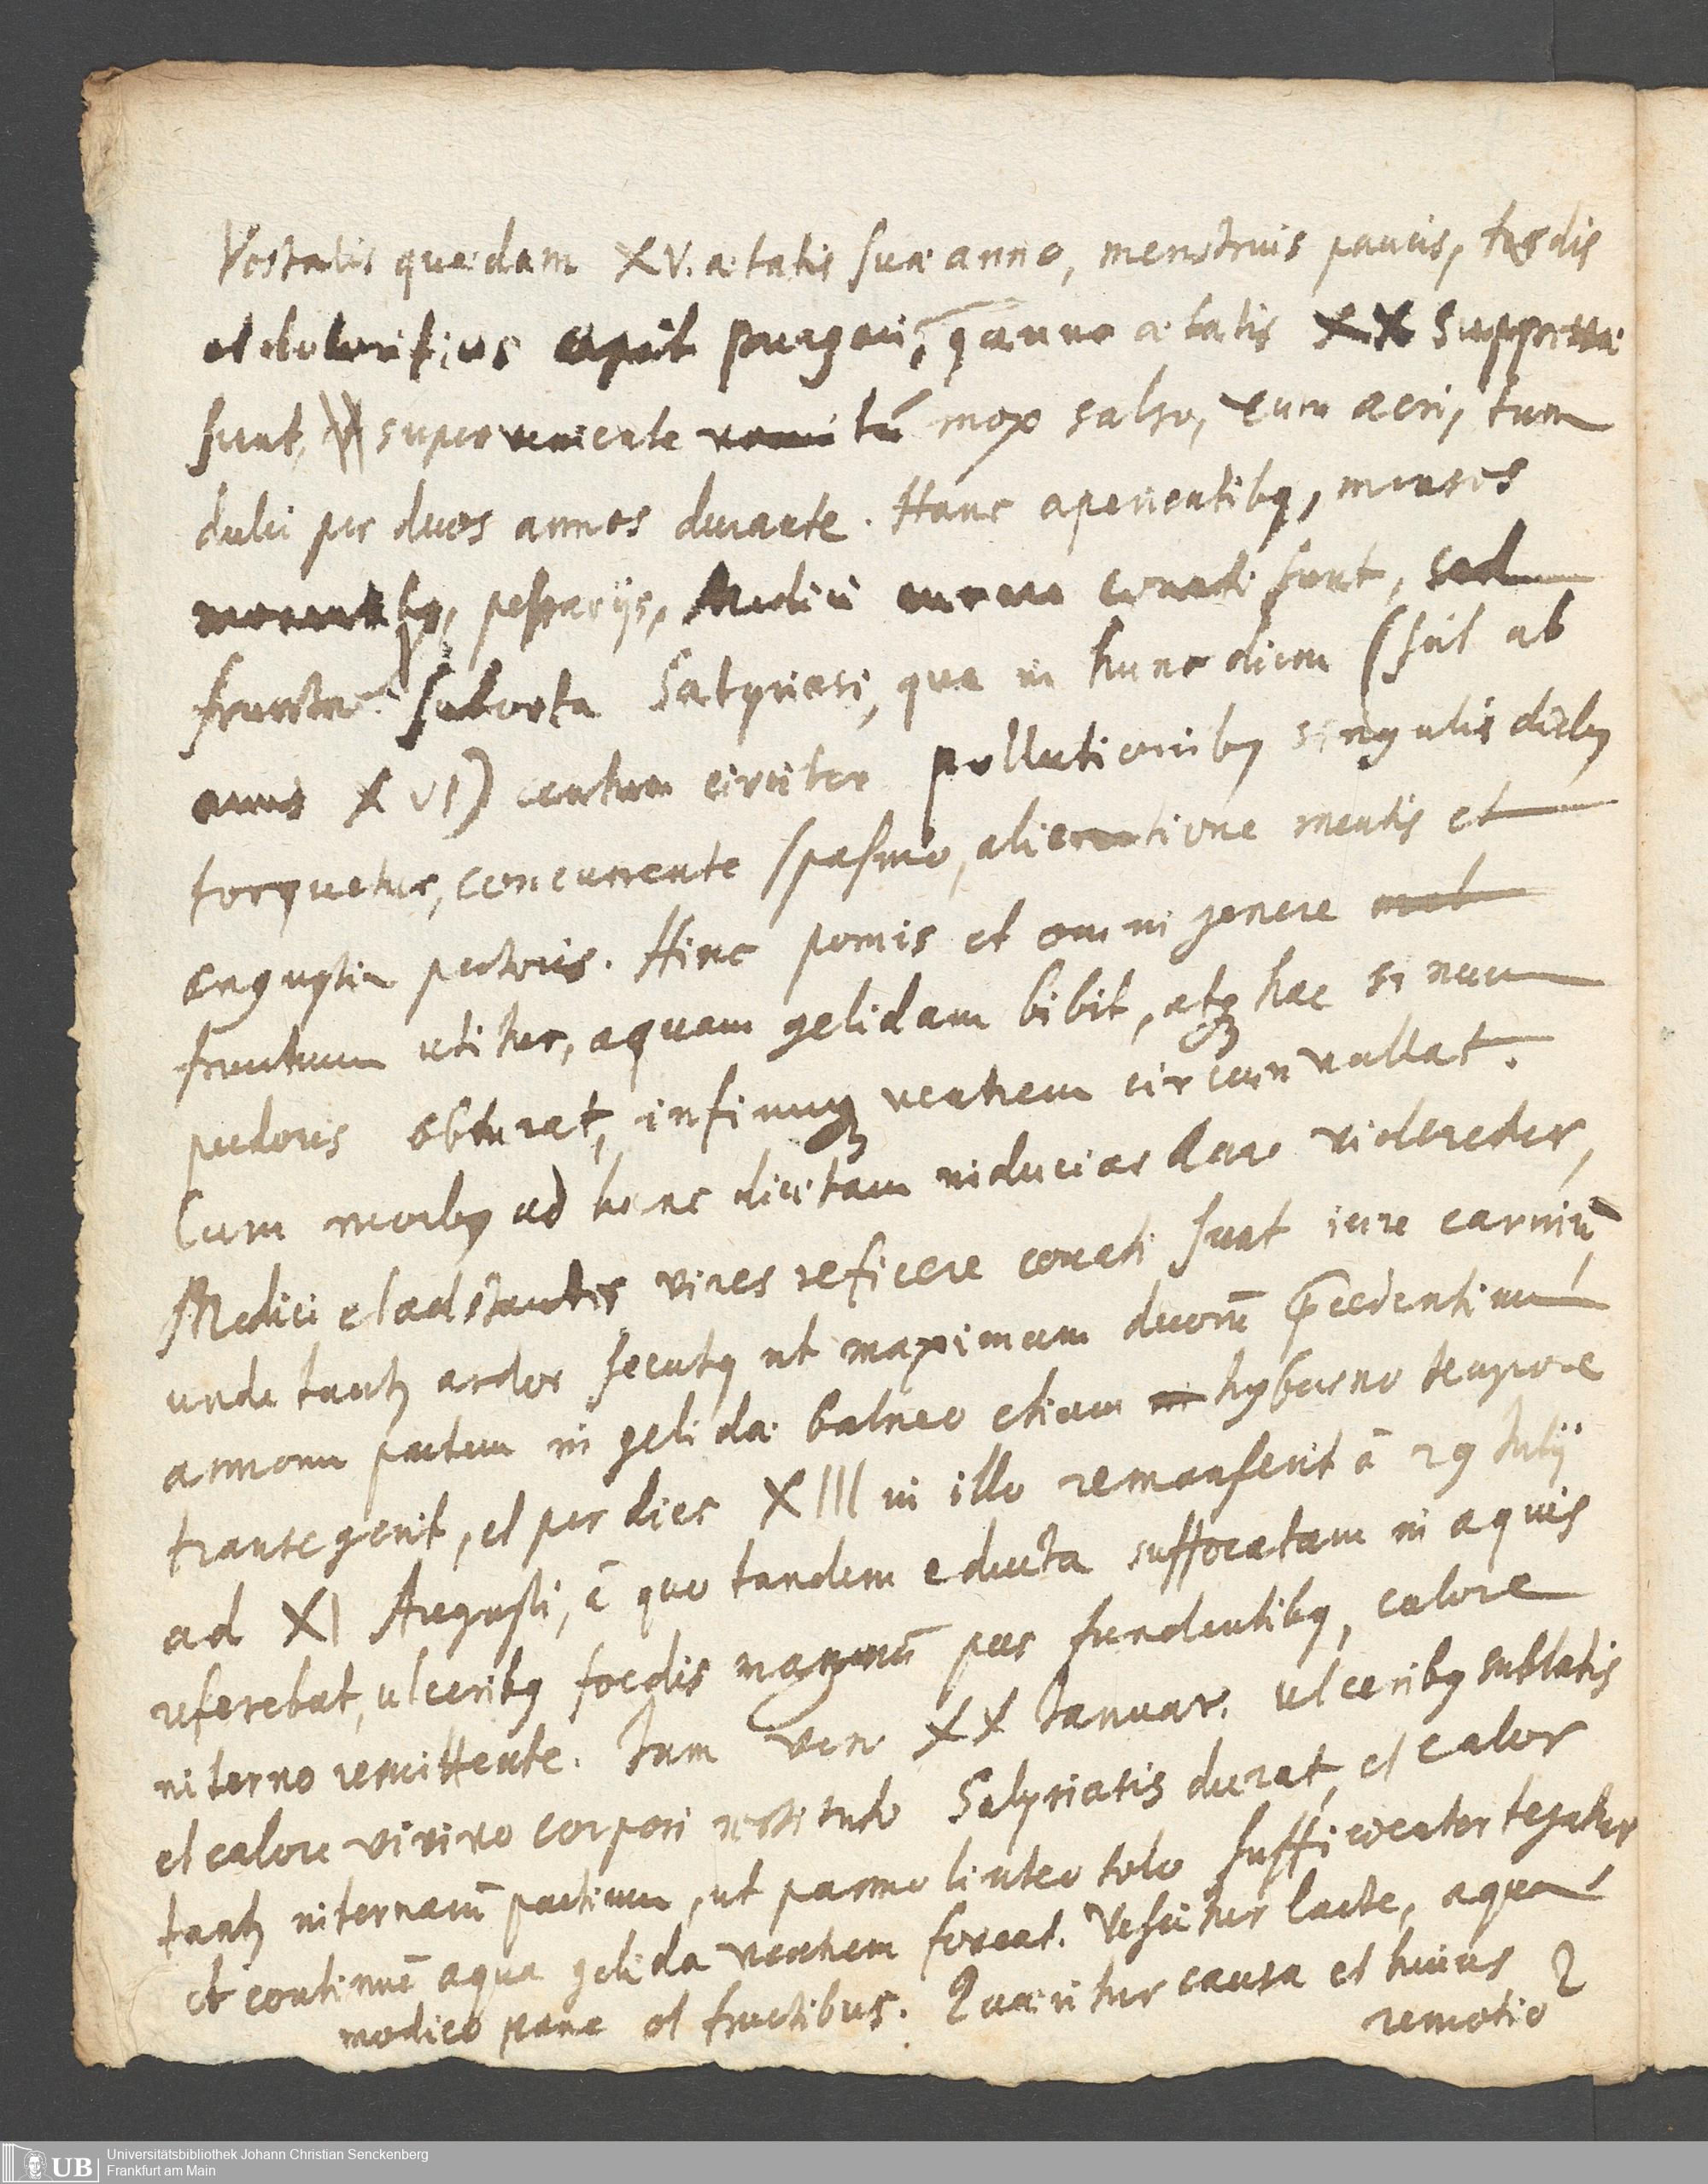 Vestalis quædam XV. ætatis suæ anno, menstruis paucis, tardis
et dolorificus cæpit purgari, q̄ anno ætatis XX suppressa
sunt, superveniente vomitū mox salso, tum acri, tum
dulci per duos annos durante. Hanc aperientibꝫ, menses
moventibꝫ, pessarijs, Medici curare conati sunt, sed
frustra suborta Satyriasi, quæ in hunc diem (scil ab
annis XVI) centum circiter pollutionibꝫ singulis diebꝫ
torquetur, concurrente spasmo, alienatione mentis et
angustia pectoris. Hinc pomis et omni genere
fructuum utitur, aquam gelidam bibit, atqꝫ hac sinum
pudoris obturat, infimumqꝫ ventrem circumvallat.
Cum morbꝫ ad hanc diætam inducias dare videretur,
Medici et adstantes vires reficere conati sunt iure carniū
unde tantꝫ ardor secutꝫ ut maximam duorū p̄cedentium
annorum partem in gelidæ balneo etiam hyberno tempore
transegerit, et per dies XIII in illo remanserit à 29 Julij
ad XI Augusti, è quo tandem educta suffocatam in aquis
referebat, ulceribꝫ foedis magnū pus fundentibꝫ, calore
interno remittente. Jam vero XX Januar. ulceribꝫ sublatis
et calore vivivo corpori restituto Satyriasis durat, et calor
tantꝫ internarū partium, ut panno linteo solo sufficienter tegatur
et continuè aqua gelida ventrem foveat. Vescitur lacte, aquâ
modico pane et fructibus. Quæritur causa et huius
remotio?
Universitätsbibliothek Johann Christian Senckenberg
Frankfurt am Main
UB